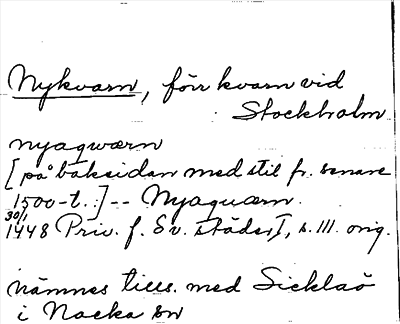 Nykvarn, förr kvarn vid
Stockholm
nyaqwærn
[på baksidan med stil fr. senare
1500-t.:] -- Nyaquærn.
30/1
1448 Priv. f. Sv. städer I, s. 111. orig.
nämnes tills. med Sicklaö
i Nacka sn